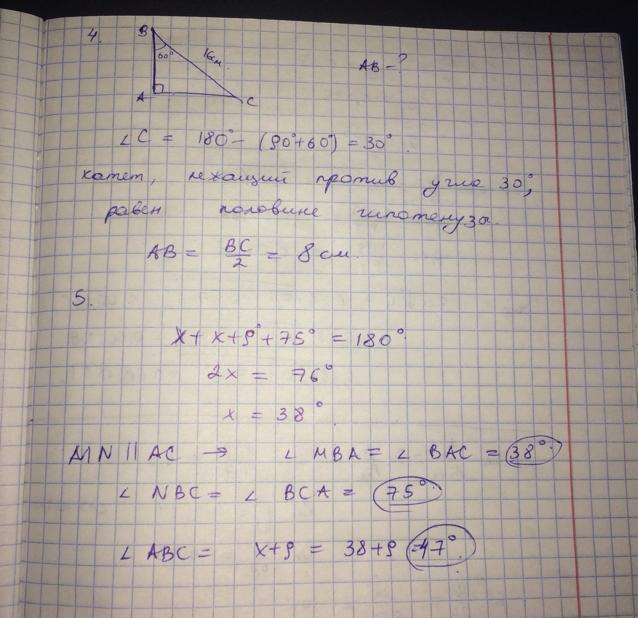 4.
B
60°
16см.
A
C
AB - ?
∠C = 180° - (90°+60°) = 30°.
катет, лежащий против угла 30°,
равен половине гипотенуза.
AB = BC/2 = 8 см.
5.
x + x + 9° + 75° = 180°
2x = 76°
x = 38°.
MN || AC → ∠ MBA = ∠ BAC = 38°.
∠ NBC = ∠ BCA = 75°.
∠ ABC = x+9 = 38+9 = 47°.